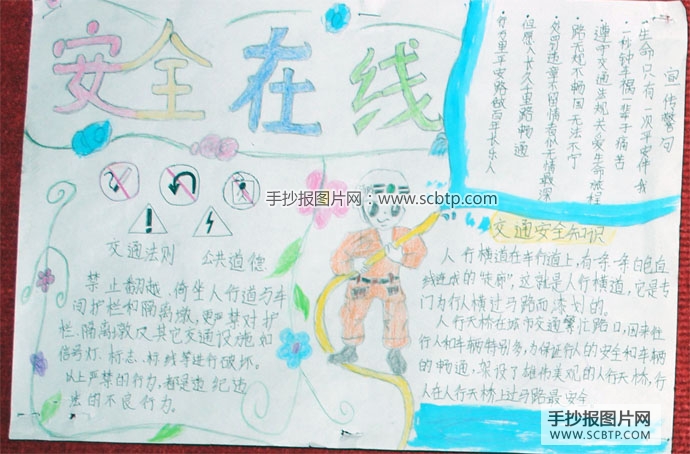 安全在线
宣传警句
·生命只有一次平安伴我
一秒钟车祸一辈子痛苦
·遵守交通法规关爱生命旅程
·路无规不畅国无法不宁
·但愿人长久千里路畅通
手抄报图片网:www.scbtp.com
交通法则 公共道德
禁止翻越、倚坐人行道与车
间护栏和隔离墩,更严禁对护
栏、隔离墩及其它交通设施如
信号灯、标志、标线等进行破坏。
以上严禁的行为,都是违纪违
法的不良行为。
交通安全知识
人行横道在车行道上,有一条一条白色直
线连成的"走廊",这就是人行横道,它是专
门为行人横过马路而漆划的。
人行天桥在城市交通繁忙路口,因来往
行人和车辆特别多,为保证行人的安全和车辆
的畅通,架设了雄伟美观的人行天桥,行
人在人行天桥上过马路最安全
手抄报图片网
WWW.SCBTP.COM